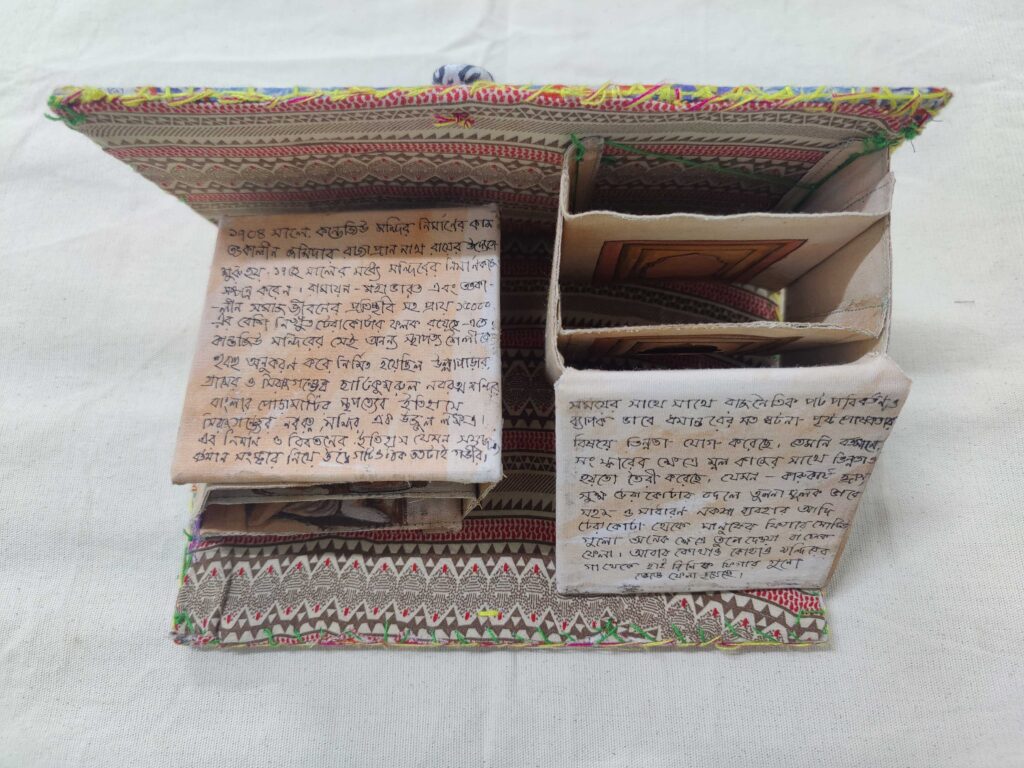 ১৭০৪ সালে কান্তজিউ মন্দির নির্মাণের কাজ
তৎকালীন জমিদার রাজা প্রান নাথ রায়ের
শুরু হয়। ১৭৫২ সালের মধ্যে মন্দিরের নির্মাণকাজ
সম্পন্ন করেন। রামায়ন - মহাভারত এবং তৎকা-
-লীন সমাজ জীবনের প্রতিচ্ছবি সহ প্রায় ১৫০০০
-এর বেশি নিখুঁত টেরাকোটার ফলক রয়েছে এতে।
কান্তজিউ মন্দিরের সেই অনন্য স্থাপত্য শৈলীকে
হুবহু অনুকরন করে নির্মিত হয়েছিল উল্লাপাড়ার
গ্রামের ও সিরাজগঞ্জের হাটিকুমরুল নবরত্ন মন্দির
বাংলার পোড়ামাটির স্থাপত্যের ইতিহাসে
সিরাজগঞ্জের নবরত্ন মন্দির এক উজ্জ্বল নক্ষত্র।
এর নির্মান ও বিবর্তনের ইতিহাস যেমন সমৃদ্ধ
বর্তমান সংস্কার নিয়ে ততটাই গভীর।
সময়ের সাথে সাথে রাজনৈতিক পট পরিবর্তন ও
ব্যাপক ভাবে ধর্মান্তরের মত ঘটনা পৃষ্ঠপোষকতার
বিষয়ে ভিন্নতা যোগ করেছে, তেমনি বর্তমানে
সংস্কারের ক্ষেত্রে মূল কাজের সাথে ভিন্নতাও
হয়তো তৈরী করেছে, যেমন - কারুকার্য
সুক্ষ্ম টেরাকোটার বদলে তুলনামূলক ভাবে
সহজ ও সাধারন নকশা ব্যবহার আদি
টেরাকোটা থেকে মানুষের ফিগার মোটিভ
গুলো অনেক ক্ষেত্রে তুলে দেওয়া বা ঢেকে
ফেলা। আবার কোথাও কোথাও মন্দিরের
গা থেকে ফিগার গুলো
ভেঙ্গে ফেলা হয়েছে।